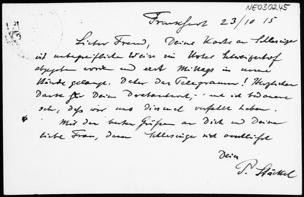 NE030245
Frankfurt 23/10 15
Lieber Freund, Deine Karte an Schlesinger
ist unbegreiflicher Weise im Hotel
abgegeben worden und erst Mittags in unsere
Hände gelangt. Daher das Telegramm! Herzlichen
Dank für Deine Bereitwilligkeit, und ich bedauere
sehr, dass wir uns diesmal verfehlt haben.
Mit den besten Grüßen an Dich und Deine
liebe Frau, denen Schlesinger sich anschließt
Dein
P. Stäckel